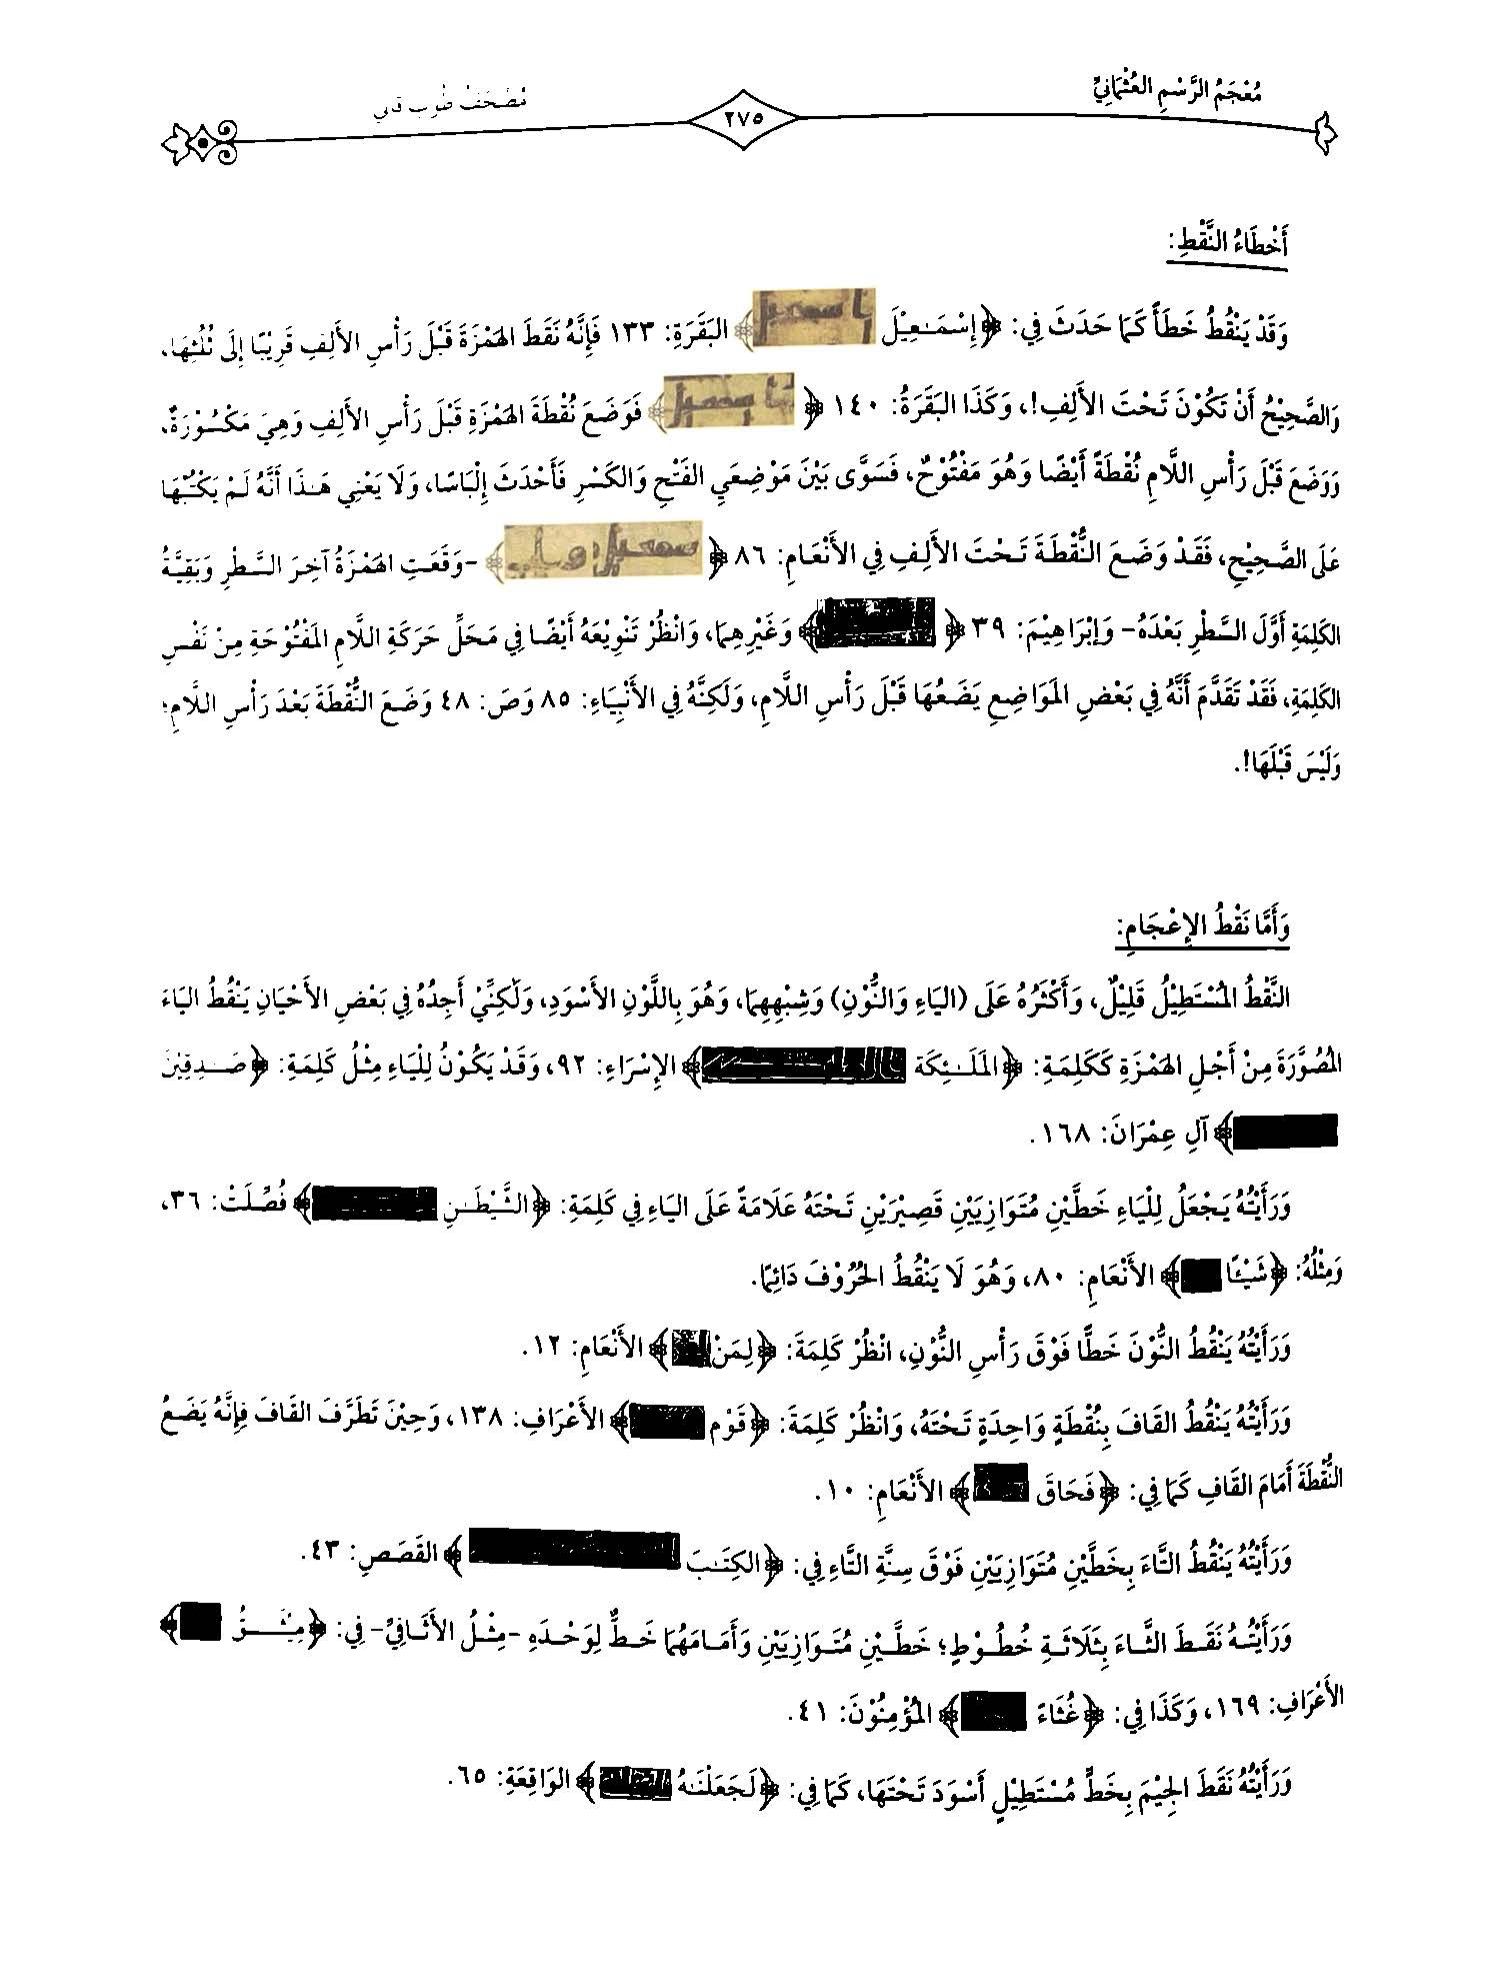 مُعْجَمُ الرَّسْمِ العُثْمَانِيِّ
٢٧٥
مُصْحَفُ طُوب قَابِي
أَخْطَاءُ النَّقْطِ:
وَقَدْ يَنْقُطُ خَطَأً كَمَا حَدَثَ فِي: ﴿إِسْمَـٰعِيْلَ ﴾ البَقَرَةِ: ١٣٣ فَإِنَّهُ نَقَطَ الهَمْزَةَ قَبْلَ رَأْسِ الأَلِفِ قَرِيْبًا إِلَى ثُلُثِهَا،
وَالصَّحِيْحُ أَنْ تَكُوْنَ تَحْتَ الأَلِفِ!، وَكَذَا البَقَرَةُ: ١٤٠ ﴿ ﴾ فَوَضَعَ نُقْطَةَ الهَمْزَةِ قَبْلَ رَأْسِ الأَلِفِ وَهِيَ مَكْسُوْرَةٌ،
وَوَضَعَ قَبْلَ رَأْسِ اللَّامِ نُقْطَةً أَيْضًا وَهُوَ مَفْتُوْحٌ، فَسَوَّى بَيْنَ مَوْضِعَيِ الفَتْحِ وَالكَسْرِ فَأَحْدَثَ إِلْبَاسًا، وَلَا يَعْنِي هَـٰذَا أَنَّهُ لَمْ يَكْتُبْهَا
عَلَى الصَّحِيْحِ، فَقَدْ وَضَعَ النُّقْطَةَ تَحْتَ الأَلِفِ فِي الأَنْعَامِ: ٨٦ ﴿ ﴾ -وَقَعَتِ الهَمْزَةُ آخِرَ السَّطْرِ وَبَقِيَّةُ
الكَلِمَةِ أَوَّلَ السَّطْرِ بَعْدَهُ- وَإِبْرَاهِيْمَ: ٣٩ ﴿ ﴾ وَغَيْرِهِمَا، وَانْظُرْ تَنْوِيْعَهُ أَيْضًا فِي مَحَلِّ حَرَكَةِ اللَّامِ المَفْتُوْحَةِ مِنْ نَفْسِ
الكَلِمَةِ، فَقَدْ تَقَدَّمَ أَنَّهُ فِي بَعْضِ المَوَاضِعِ يَضَعُهَا قَبْلَ رَأْسِ اللَّامِ، وَلَكِنَّهُ فِي الأَنْبِيَاءِ: ٨٥ وَصَ: ٤٨ وَضَعَ النُّقْطَةَ بَعْدَ رَأْسِ اللَّامِ؛
وَلَيْسَ قَبْلَهَا!.
وَأَمَّا نَقْطُ الإِعْجَامِ:
النَّقْطُ المُسْتَطِيْلُ قَلِيْلٌ، وَأَكْثَرُهُ عَلَى (اليَاءِ وَالنُّوْنِ) وَشِبْهِهِمَا، وَهُوَ بِاللَّوْنِ الأَسْوَدِ، وَلَكِنِّيْ أَجِدُهُ فِي بَعْضِ الأَحْيَانِ يَنْقُطُ اليَاءَ
المُصُوَّرَةَ مِنْ أَجْلِ الهَمْزَةِ كَكَلِمَةِ: ﴿المَلَـٰئِكَة ﴾ الإِسْرَاءِ: ٩٢، وَقَدْ يَكُوْنُ لِلْيَاءِ مِثْلُ كَلِمَةِ: ﴿صَـٰدِقِيْنَ
﴾ آلِ عِمْرَانَ: ١٦٨.
وَرَأَيْتُهُ يَجْعَلُ لِلْيَاءِ خَطَّيْنِ مُتَوَازِيَيْنِ قَصِيْرَيْنِ تَحْتَهُ عَلَامَةً عَلَى اليَاءِ فِي كَلِمَةِ: ﴿الشَّيْطَـٰنِ ﴾ فُصِّلَتْ: ٣٦،
وَمِثْلُهُ: ﴿شَيْـًٔا ﴾ الأَنْعَامِ: ٨٠، وَهُوَ لَا يَنْقُطُ الحُرُوْفَ دَائِمًا.
وَرَأَيْتُهُ يَنْقُطُ النُّوْنَ خَطًّا فَوْقَ رَأْسِ النُّوْنِ، انْظُرْ كَلِمَةَ: ﴿لِمَنْ ﴾ الأَنْعَامِ: ١٢.
وَرَأَيْتُهُ يَنْقُطُ القَافَ بِنُقْطَةٍ وَاحِدَةٍ تَحْتَهُ، وَانْظُرْ كَلِمَةَ: ﴿قَوْم ﴾ الأَعْرَافِ: ١٣٨، وَحِيْنَ تَطَرَّفَ القَافَ فَإِنَّهُ يَضَعُ
النُّقْطَةَ أَمَامَ القَافِ كَمَا فِي: ﴿فَحَاقَ ﴾ الأَنْعَامِ: ١٠.
وَرَأَيْتُهُ يَنْقُطُ التَّاءَ بِخَطَّيْنِ مُتَوَازِيَيْنِ فَوْقَ سِنَّةِ التَّاءِ فِي: ﴿الكِتَـٰبَ ﴾ القَصَصِ: ٤٣.
وَرَأَيْتُهُ نَقَطَ الثَّاءَ بِثَلَاثَةِ خُطُوْطٍ؛ خَطَّيْنِ مُتَوَازِيَيْنِ وَأَمَامَهُمَا خَطٌّ لِوَحْدَهِ -مِثْلُ الأَثَافِيِّ- فِي: ﴿ ﴾
الأَعْرَافِ: ١٦٩، وَكَذَا فِي: ﴿غُثَاءً ﴾ المُؤْمِنُوْنَ: ٤١.
وَرَأَيْتُهُ نَقَطَ الجِيْمَ بِخَطٍّ مُسْتَطِيْلٍ أَسْوَدَ تَحْتَهَا، كَمَا فِي: ﴿لَجَعَلْنَـٰهُ ﴾ الوَاقِعَةِ: ٦٥.